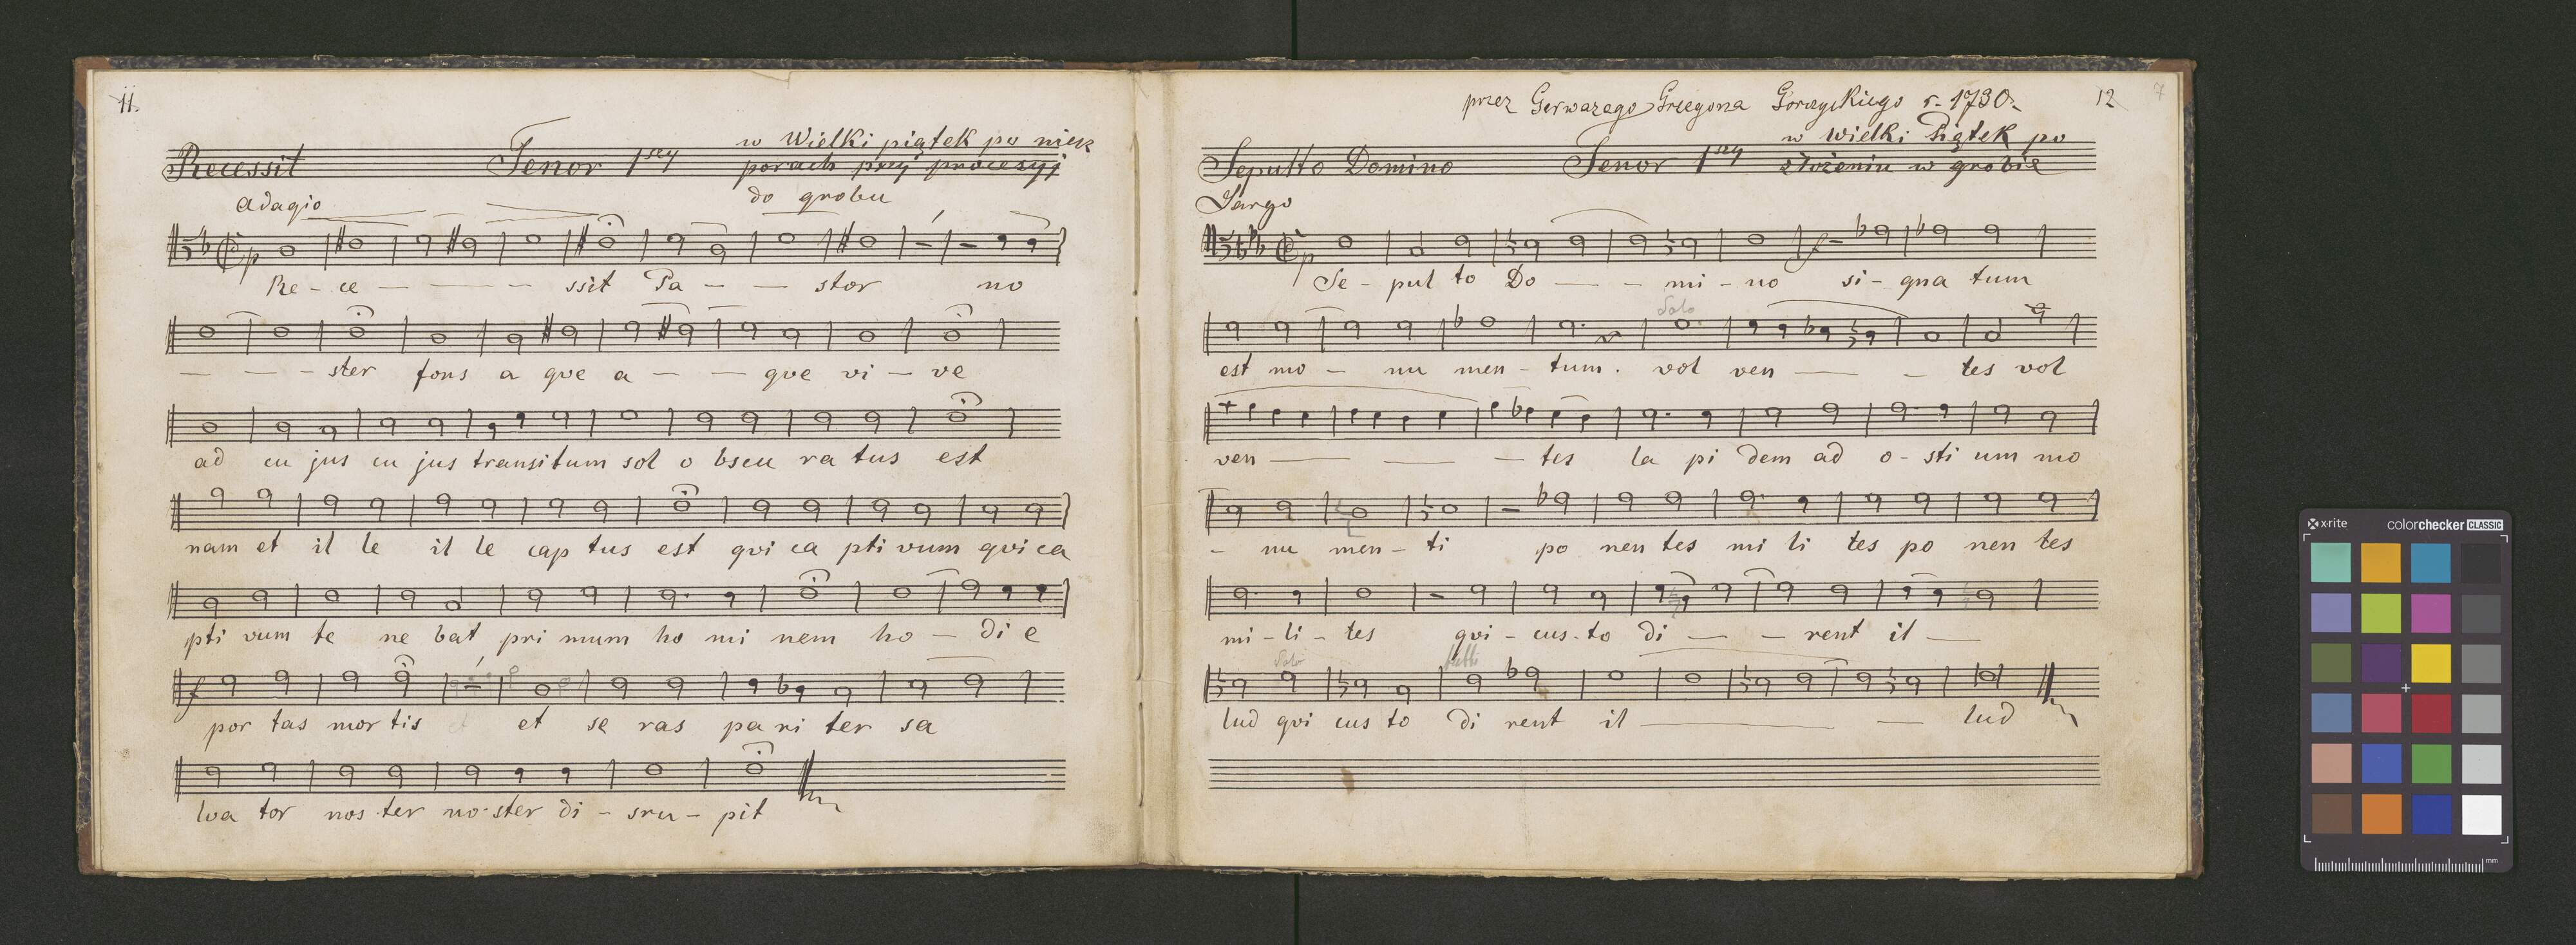 11.
Recessit Tenor 1szy w Wielki piątek po niesz
porach przy procesyj
Adagio do grobu
p
Re - ce - — - ssit Pa - — stor no
— — - ster fons a que a - — que vi - ve
ad cu jus cu jus transitum sol o bscu ra tus est
nam et il le il le cap tus est qvi ca pti vum qvi ca
pti vum te ne bat pri mum ho mi nem ho - di e
f
por tas mor tis et et se ras pa ri ter sa
lva tor nos ter no-ster di - sru - pit
przez Gerwazego Grzegorza Gorczyckiego r. 1730. 12 7
Sepulto Domino Tenor 1szy w Wielki Piątek po
złożeniu w grobie
Largo
p
Se - pul to Do — - mi - no si - gna tum
Solo
est mo - nu men - tum. vol ven — - tes vol
ven — — - tes la pi dem ad o - sti um mo
- nu men - ti po nen tes mi li tes po nen tes
mi - li - tes qvi - cus - to di — - rent il —
Solo tutti
lud qvi cus to di rent il — — lud
x-rite colorchecker CLASSIC
mm